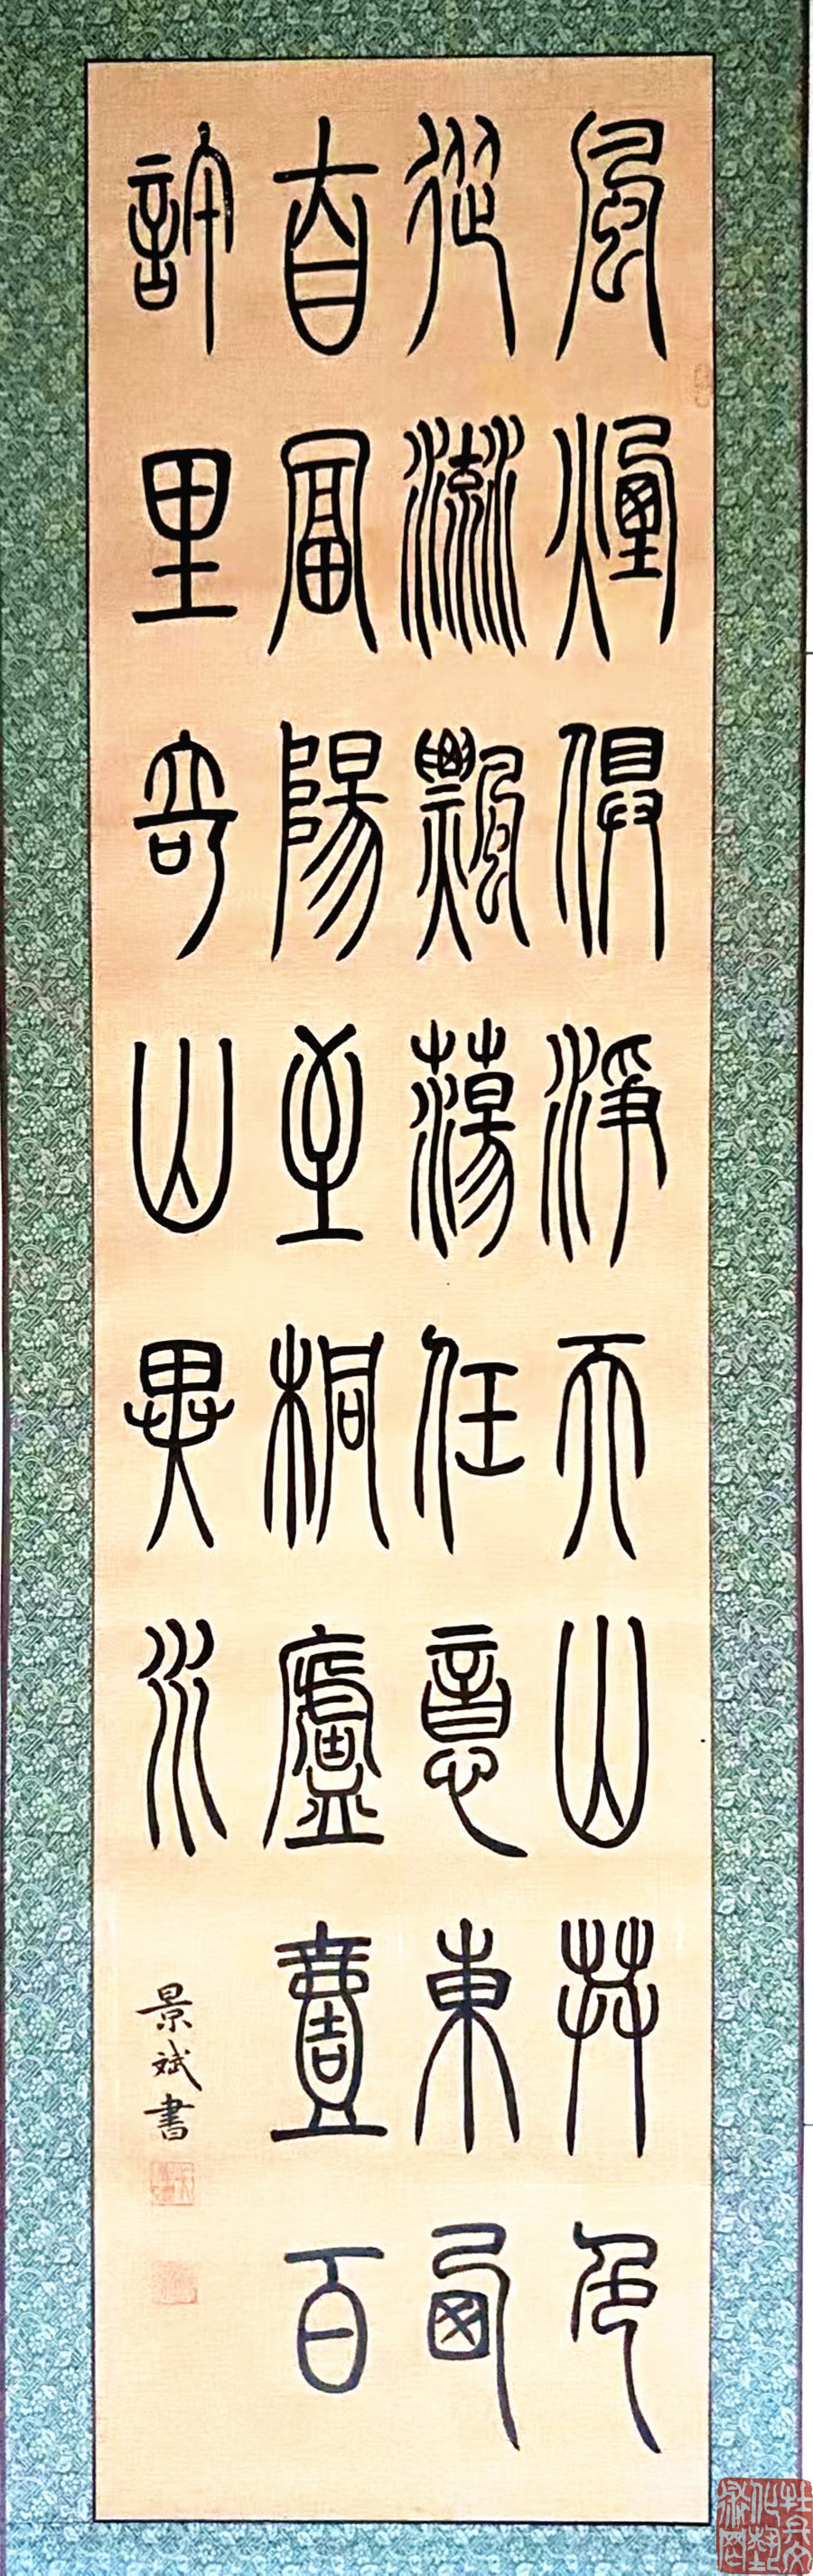 風煙俱淨天山共色
從流飄蕩任意東西
自富陽至桐廬壹百
許里奇山異水
景斌書